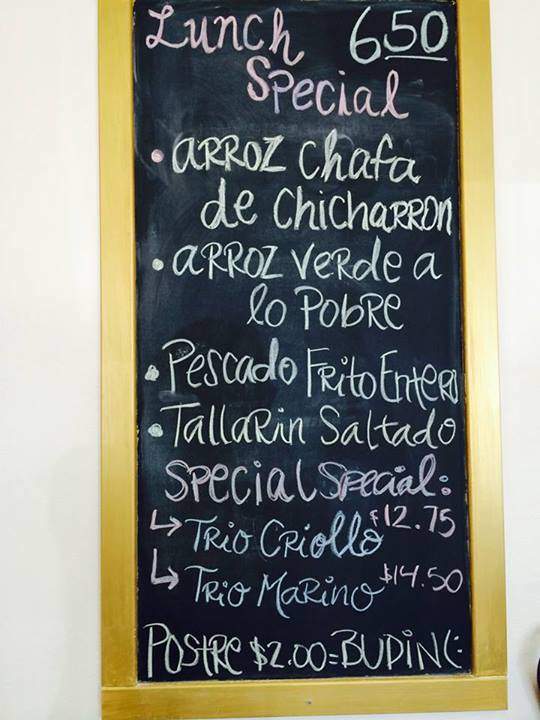 Lunch 650
Special
• ARROZ Chafa
de Chicharron
• ARROZ Verde a
lo Pobre
• Pescado Frito Entero
• Tallarin Saltado
Special Special:
↳ Trio Criollo $12.75
↳ Trio Marino $14.50
Postre $2.00=BUDIN(: